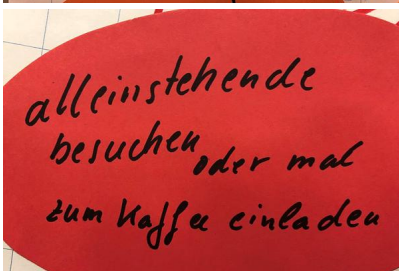 alleinstehende
besuchen oder mal
zum Kaffee einladen